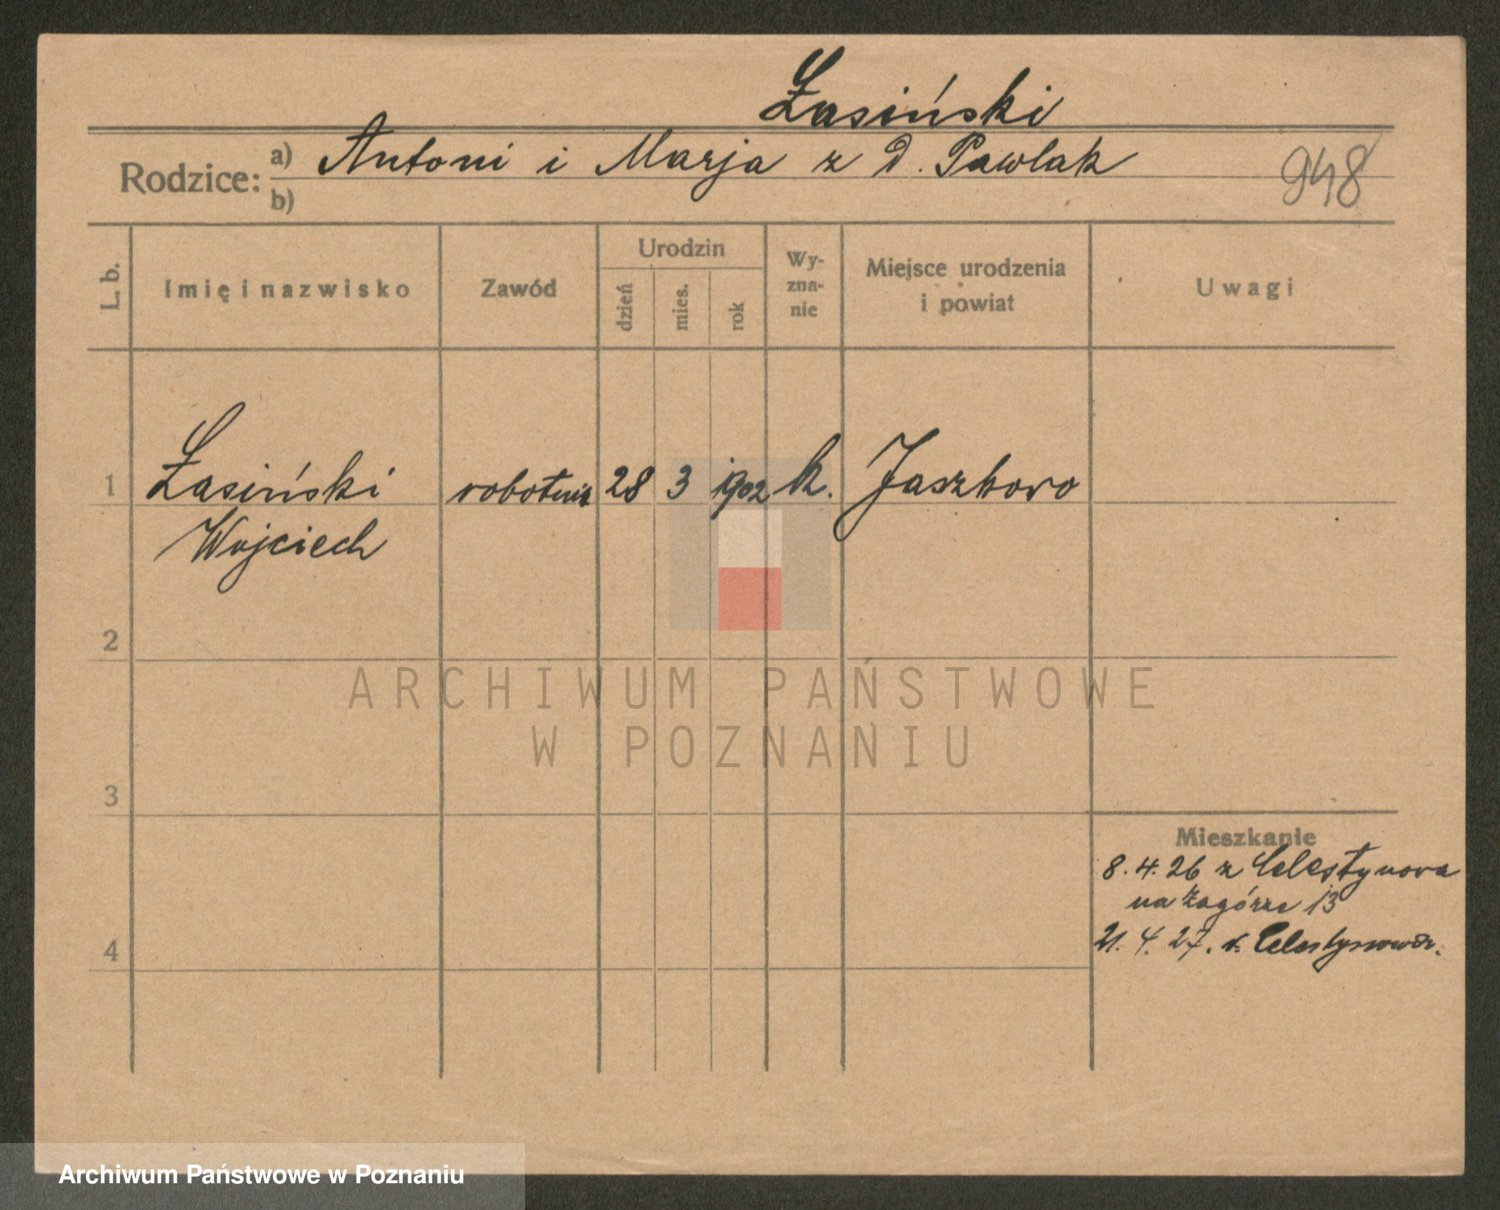 Łasiński
Rodzice: a) Antoni i Marja z d. Pawlak
b)
948
L. b.
Imię i nazwisko
Zawód
Urodzin
dzień
mies.
rok
Wy-
zna-
nie
Miejsce urodzenia
i powiat
Uwagi
1 Łasiński robotnik 28 3 1902 k. Jaszkowo
Wojciech
2
3
4
Mieszkanie
8. 4. 26 z Celestynowa
na Zagórze 13
21. 4. 27. d. Celestynowa.
ARCHIWUM PAŃSTWOWE
W POZNANIU
Archiwum Państwowe w Poznaniu